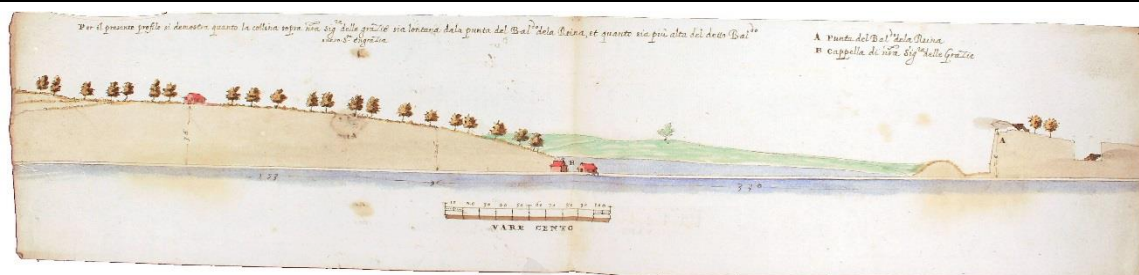 Per il presente profilo si demostra quanto la collina sopra nra sig.ra delle gratie sia lontana dala punta del Bal.do dela Reina, et quanto sia più alta del detto Bal.do
A Punta del Bal.do dela Reina
B Cappella di nra Sig.ra delle Gratie
A
B
A
370
10 20 30 40 50 60 70 80 90 100
VARE CENTO